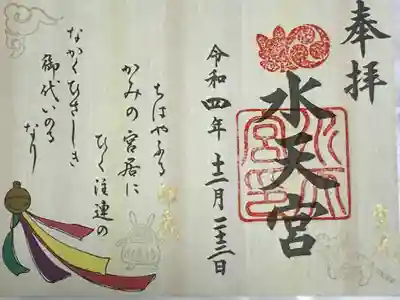 奉拝
水天宮
令和四年十二月二十三日
ちはやふる
かみの宮居に
ひく注連の
なかくひさしき
御代いのる
なり